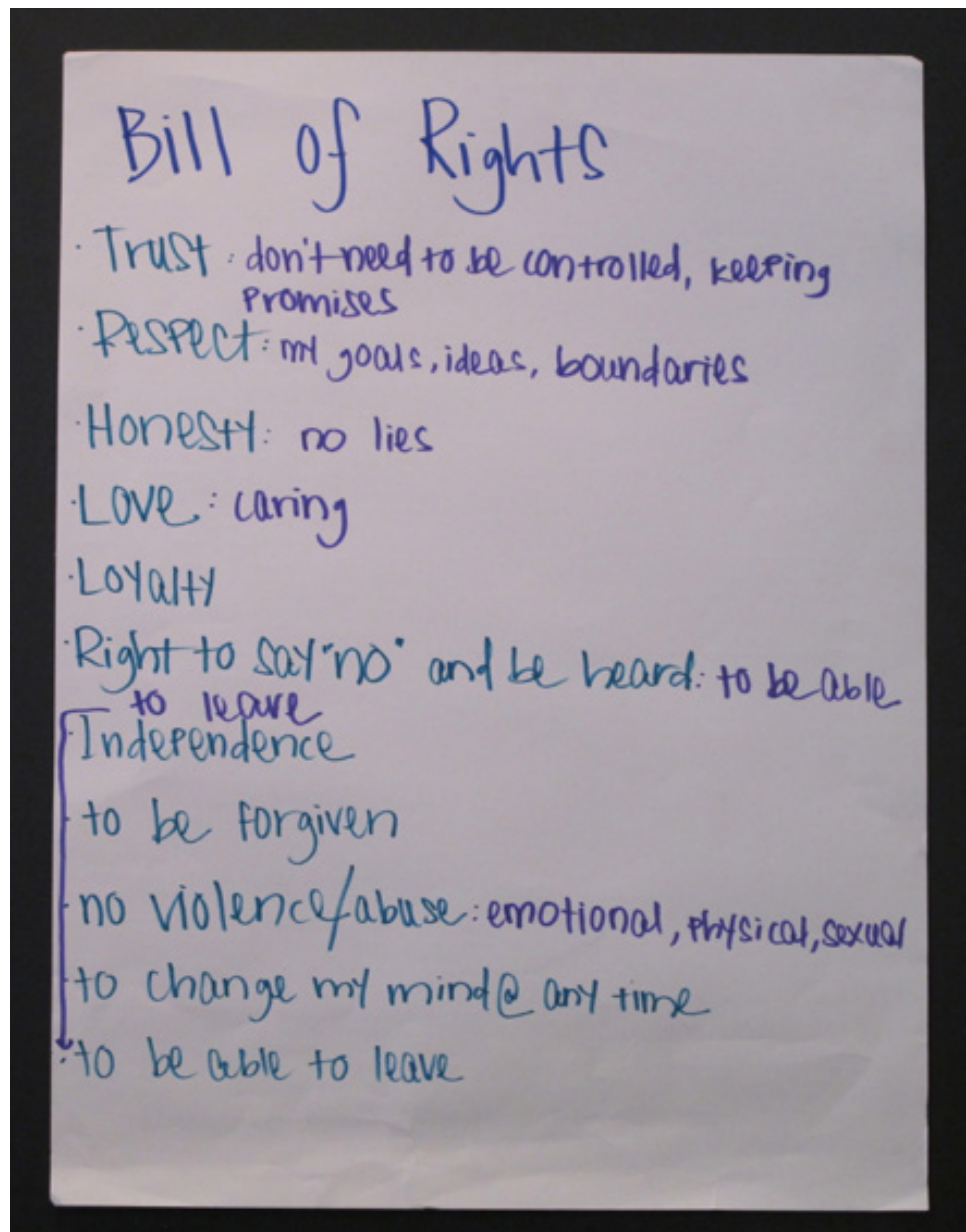 Bill of Rights
· Trust: don't need to be controlled, keeping
promises
· Respect: my goals, ideas, boundaries
· Honesty: no lies
· Love: caring
· Loyalty
· Right to say "no" and be heard: to be able
to leave
· Independence
· to be forgiven
· no violence/abuse: emotional, physical, sexual
· to change my mind @ any time
· to be able to leave